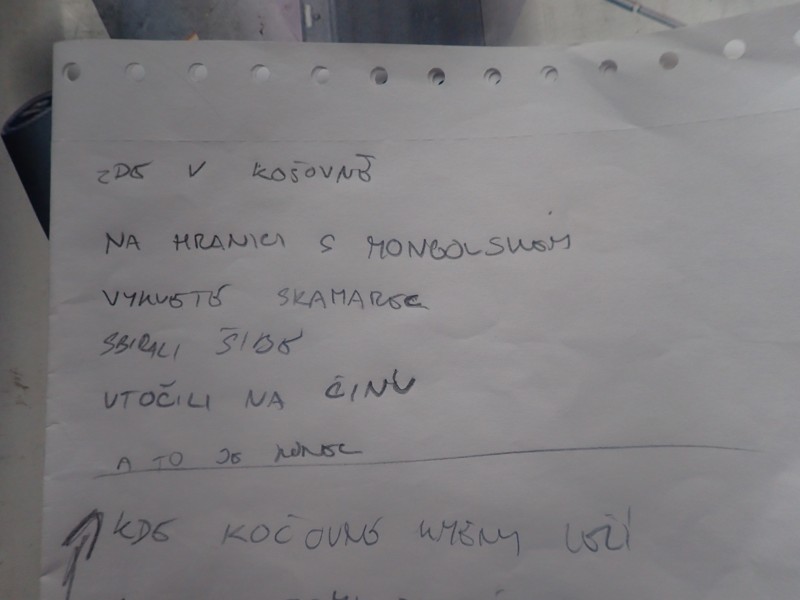 ZDE V KOŠOVNĚ
NA HRANICI S MONGOLSKEM
VYKVETÉ SKAMAREC
SBIRALI ŠIDE
UTOČILI NA ČINU
A TO JE KONEC
KDE KOČOVNÉ KMENY LEŽÍ